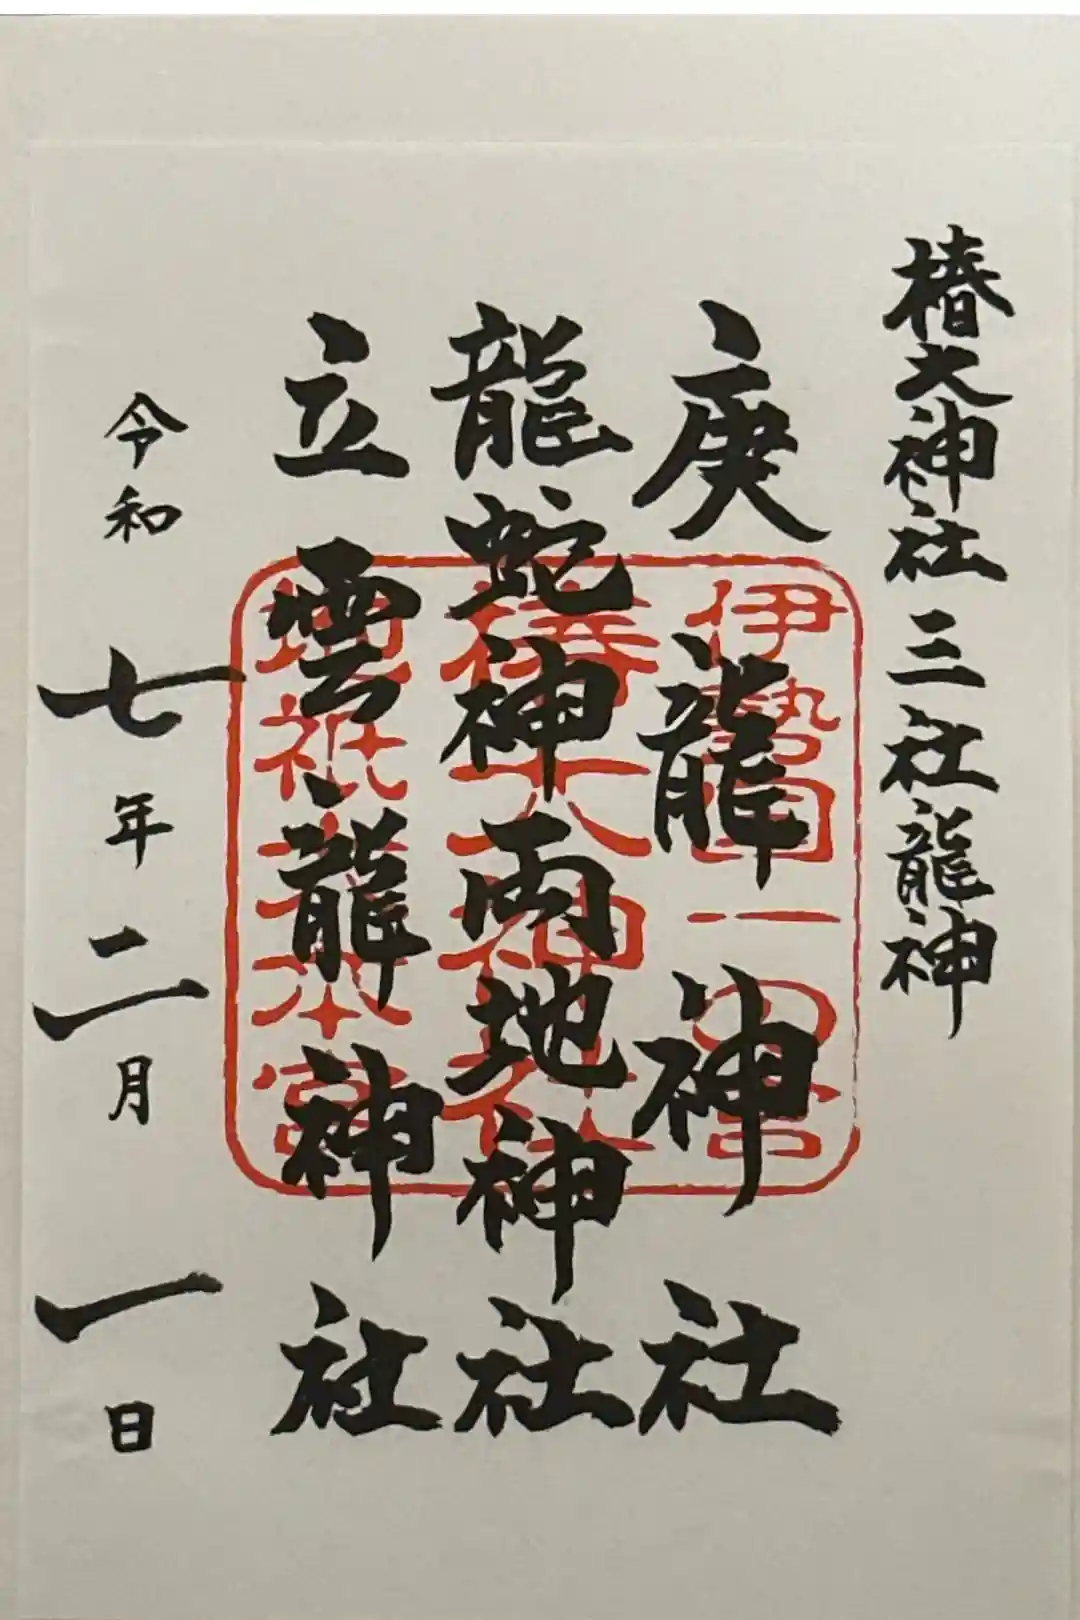 椿大神社 三社龍神
庚龍神社
龍蛇神両地神社
立雲龍神社
令和七年二月一日
伊勢国一の宮
椿大神社
地祇大本宮